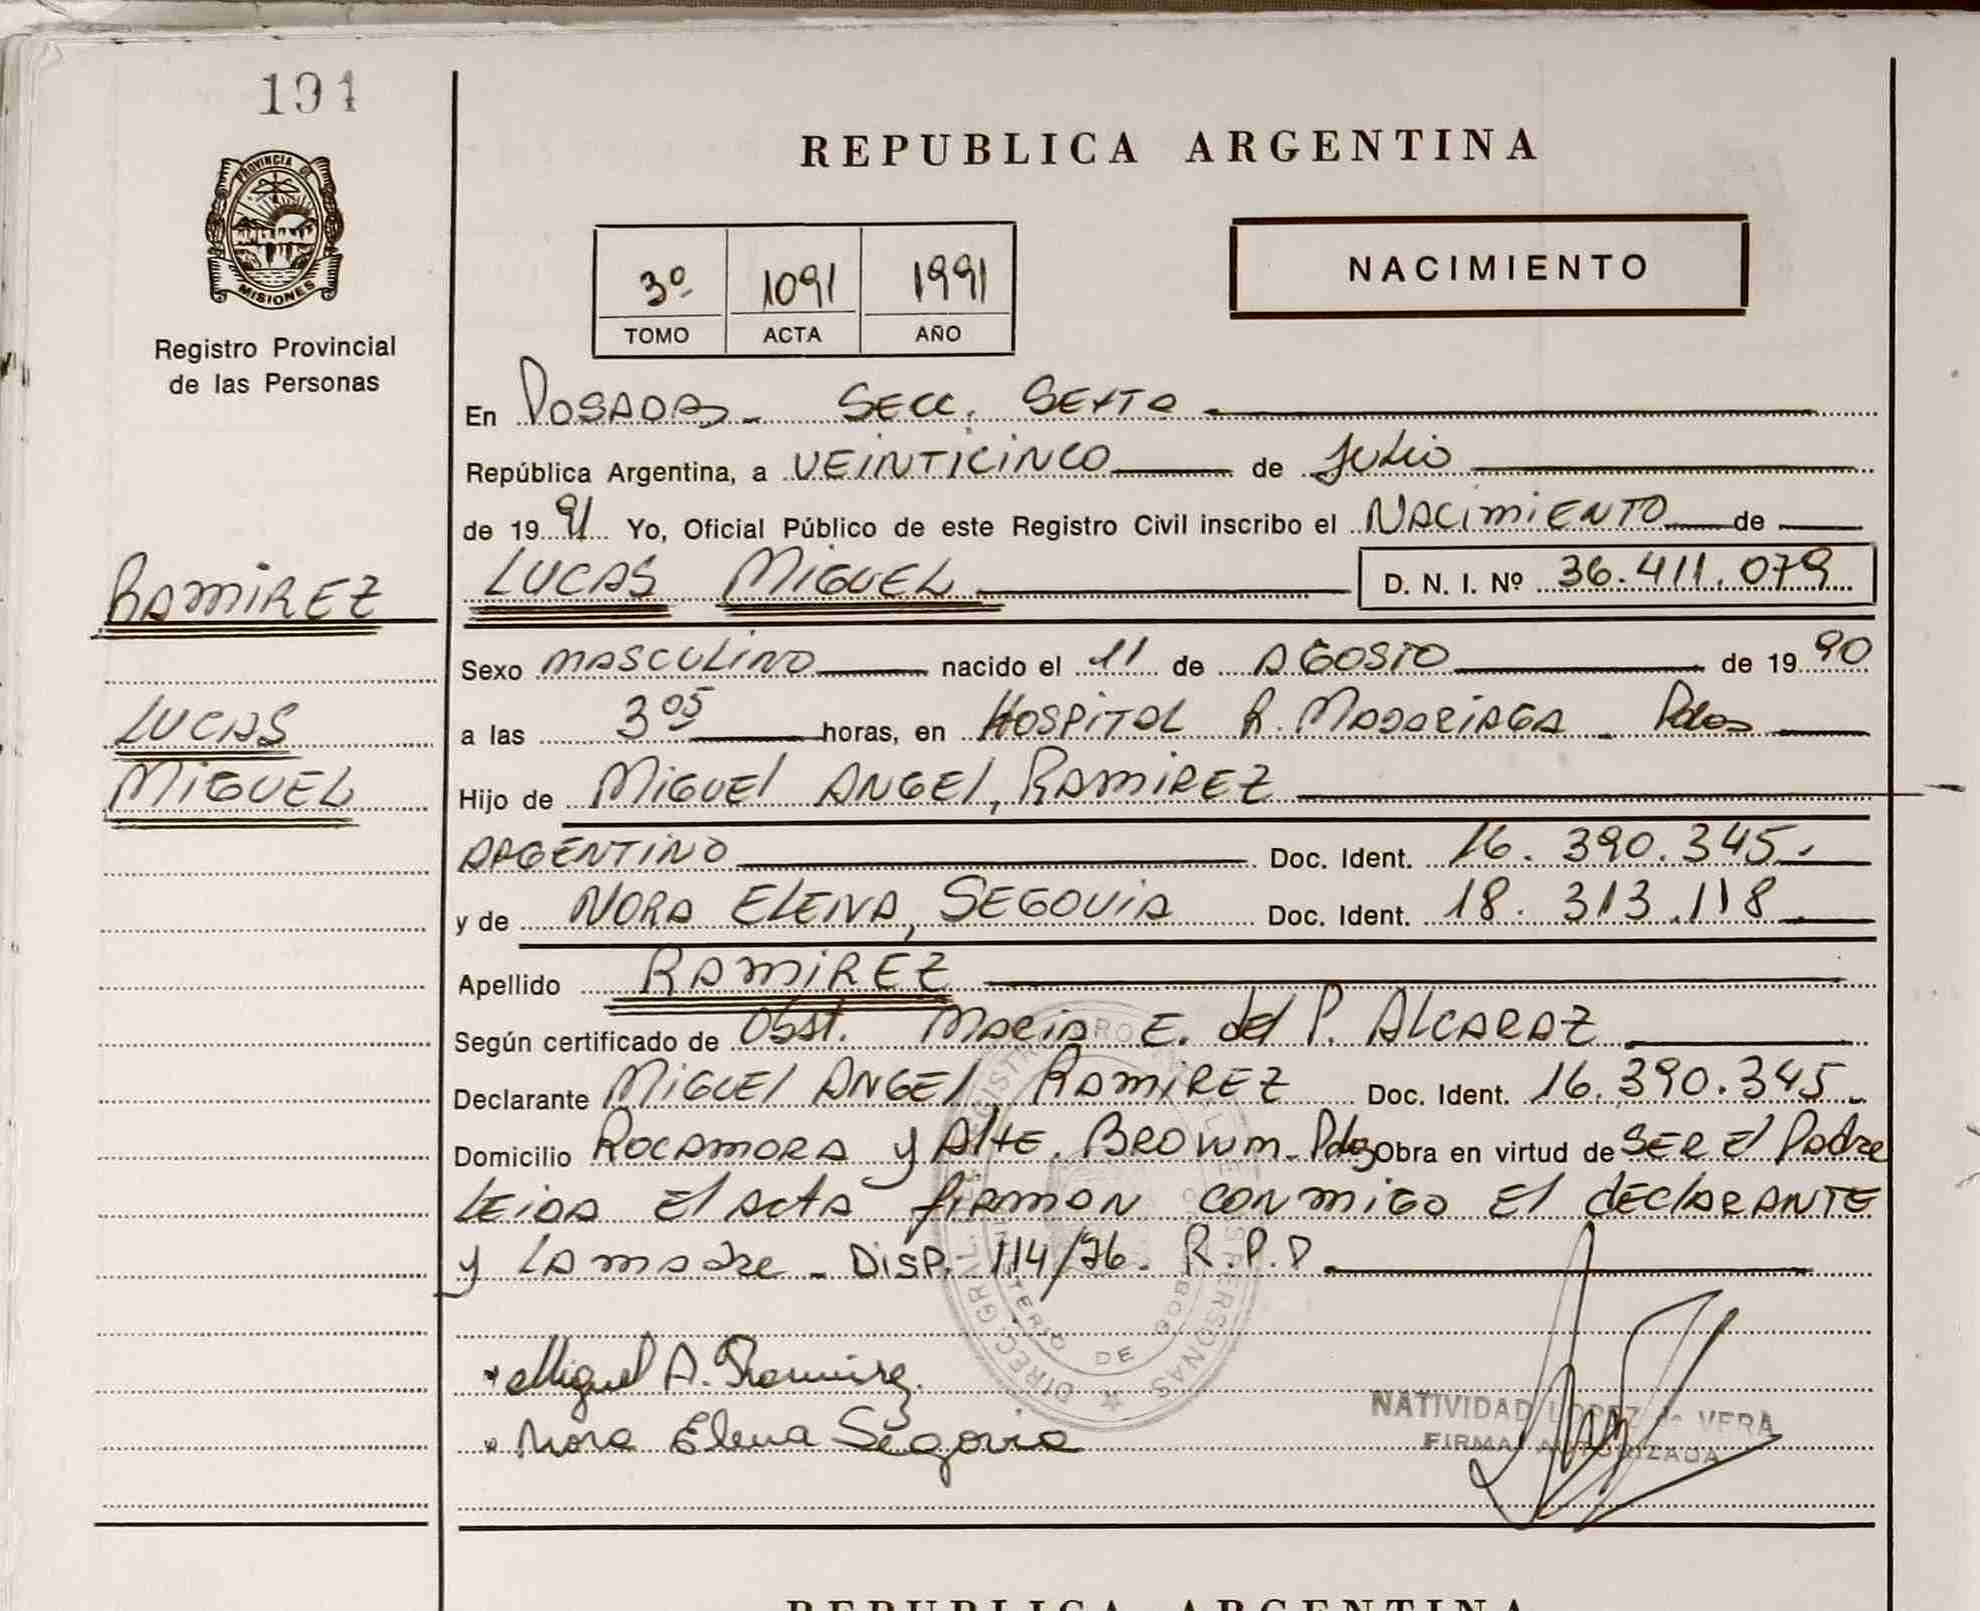 191
REPUBLICA ARGENTINA
PROVINCIA DE
MISIONES
Registro Provincial
de las Personas
3º 1091 1991
TOMO ACTA AÑO
NACIMIENTO
En POSADAS - SECC. SEXTA
República Argentina, a VEINTICINCO de JULIO
de 1991 Yo, Oficial Público de este Registro Civil inscribo el NACIMIENTO de
RAMIREZ
LUCAS MIGUEL D. N. I. Nº 36.411.079
Sexo MASCULINO nacido el 11 de AGOSTO de 1990
LUCAS
a las 3 05 horas, en HOSPITAL R. MADARIAGA - Pdas
MIGUEL
Hijo de MIGUEL ANGEL, RAMIREZ
ARGENTINO Doc. Ident. 16.390.345.
y de NORA ELENA, SEGOVIA Doc. Ident. 18.313.118
Apellido RAMIREZ
Según certificado de Obst. MARIA E. del P. ALCARAZ
Declarante MIGUEL ANGEL RAMIREZ Doc. Ident. 16.390.345
Domicilio ROCAMORA y Alte. BROWN - Pdas Obra en virtud de SER El Padre
LEIDA El ActA fiRMAN CONMIGO El dEClARANTE
y LA madre - DISP. 114/76. R.P.P.
Miguel A. Ramirez.
Nora Elena Segovia
NATIVIDAD LOPEZ de VERA
FIRMA AUTORIZADA
REPUBLICA ARGENTINA